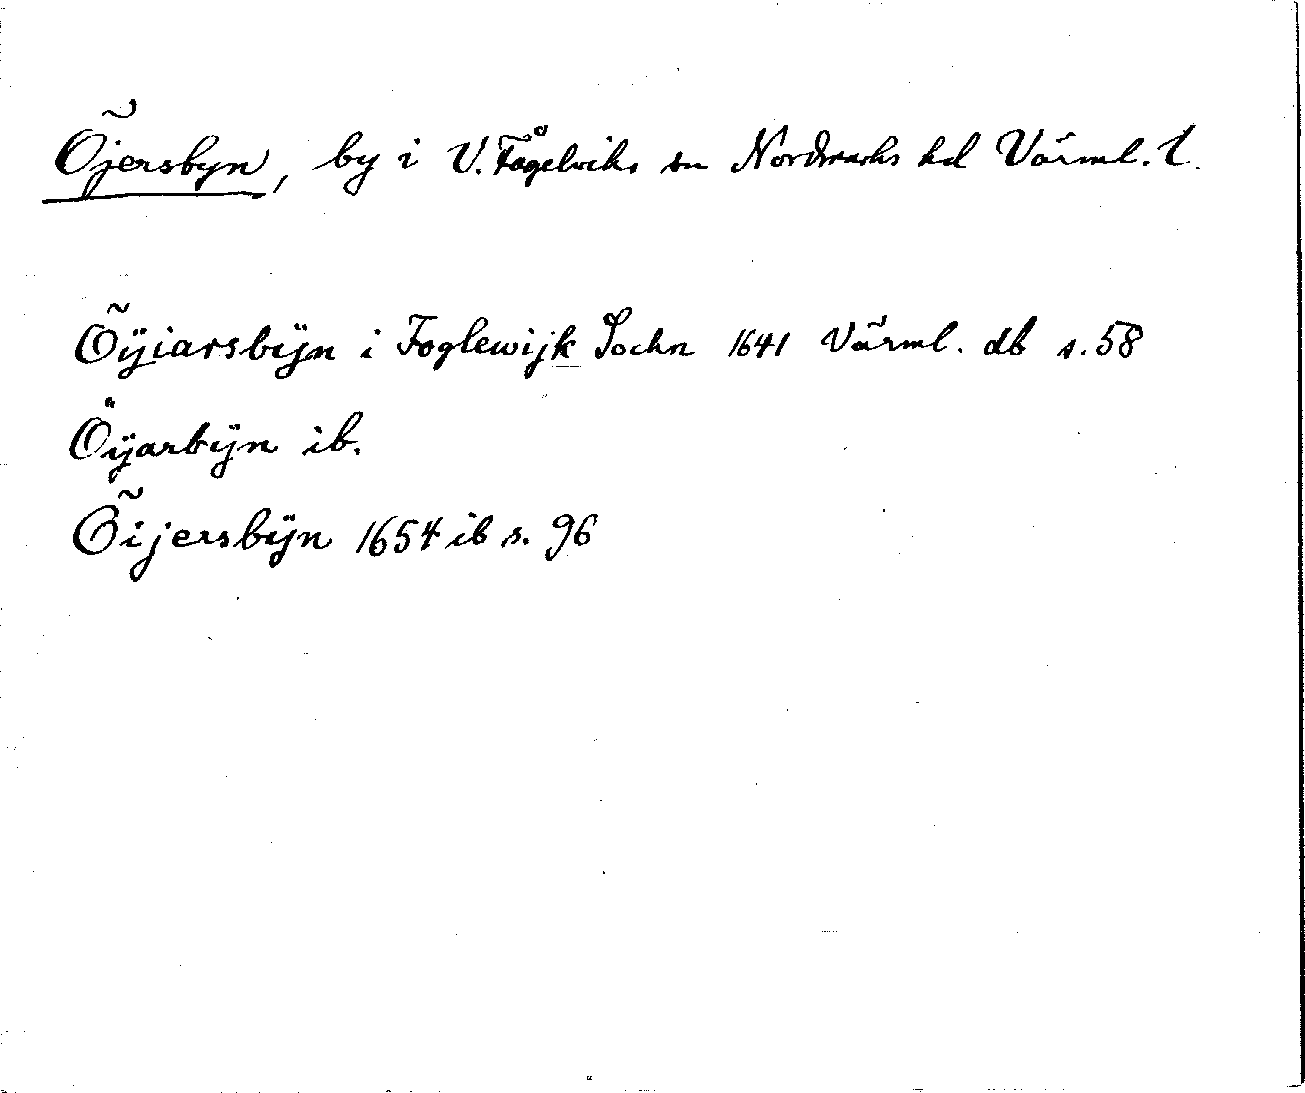 Öjersbyn, by i V. Fågelviks sn Nordmarks hd Värml. l.
Öÿiarsbÿn i Foglewijk Sochn 1641 Värml. db s. 58
Öÿarbÿn ib.
Öijersbÿn 1654 ib s. 96